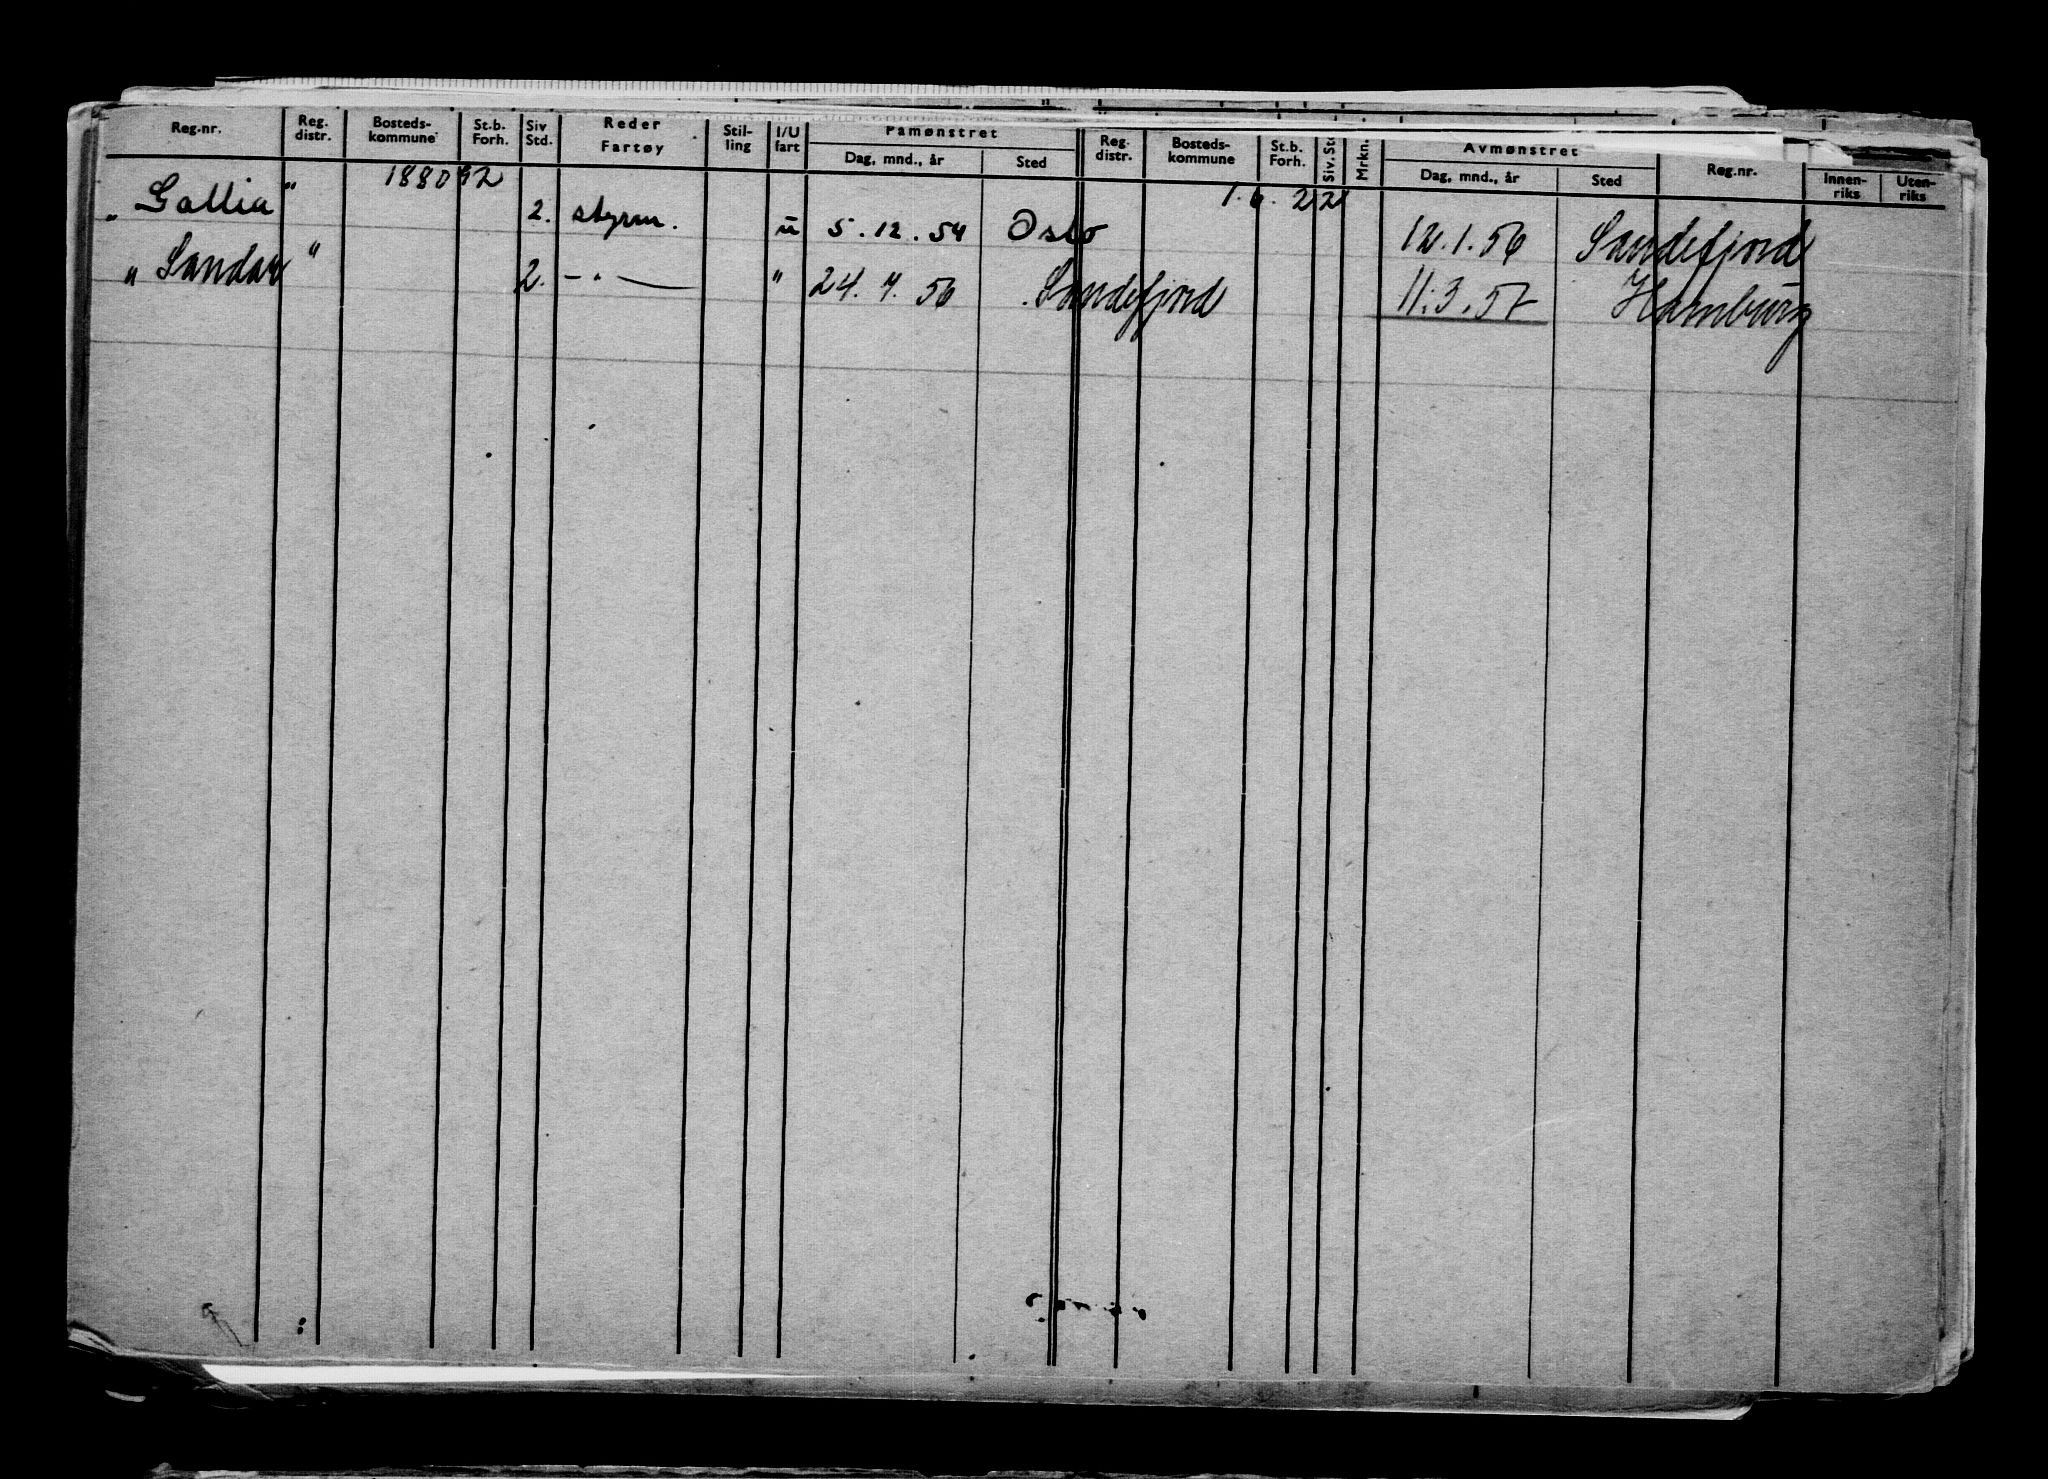 Reg.nr. Reg. distr. Bosteds-kommune St.b. Forh. Siv Std. Reder Fartøy Stil-ling I/U fart Påmønstret Dag, mnd., år Sted Reg. distr. Bosteds-kommune St.b. Forh. Siv. Std Mrkn. Avmønstret Dag, mnd., år Sted Reg.nr. Innen-riks Uten-riks
188092 1.6.22
"Gallia" 2. styrm. u 5.12.54 Oslo 12.1.56 Sandefjord
"Sandar" 2. -"- " 24.7.56 Sandefjord 11.3.57 Hamburg